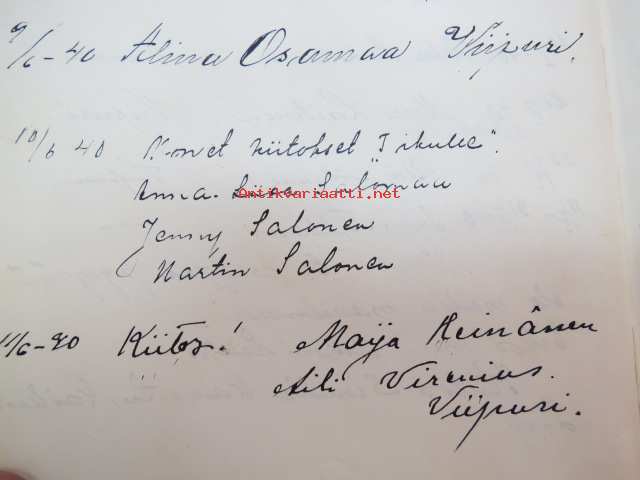 9/6-40 Alina Osamaa Viipuri.
10/6 40 kiitokset
Anna-Liisa Salomaa
Antikvariaatti.net
Jenny Salonen
Martin Salonen
11/6-40 Kiitos! Maija Heinänen
Aili Virenius.
Viipuri.